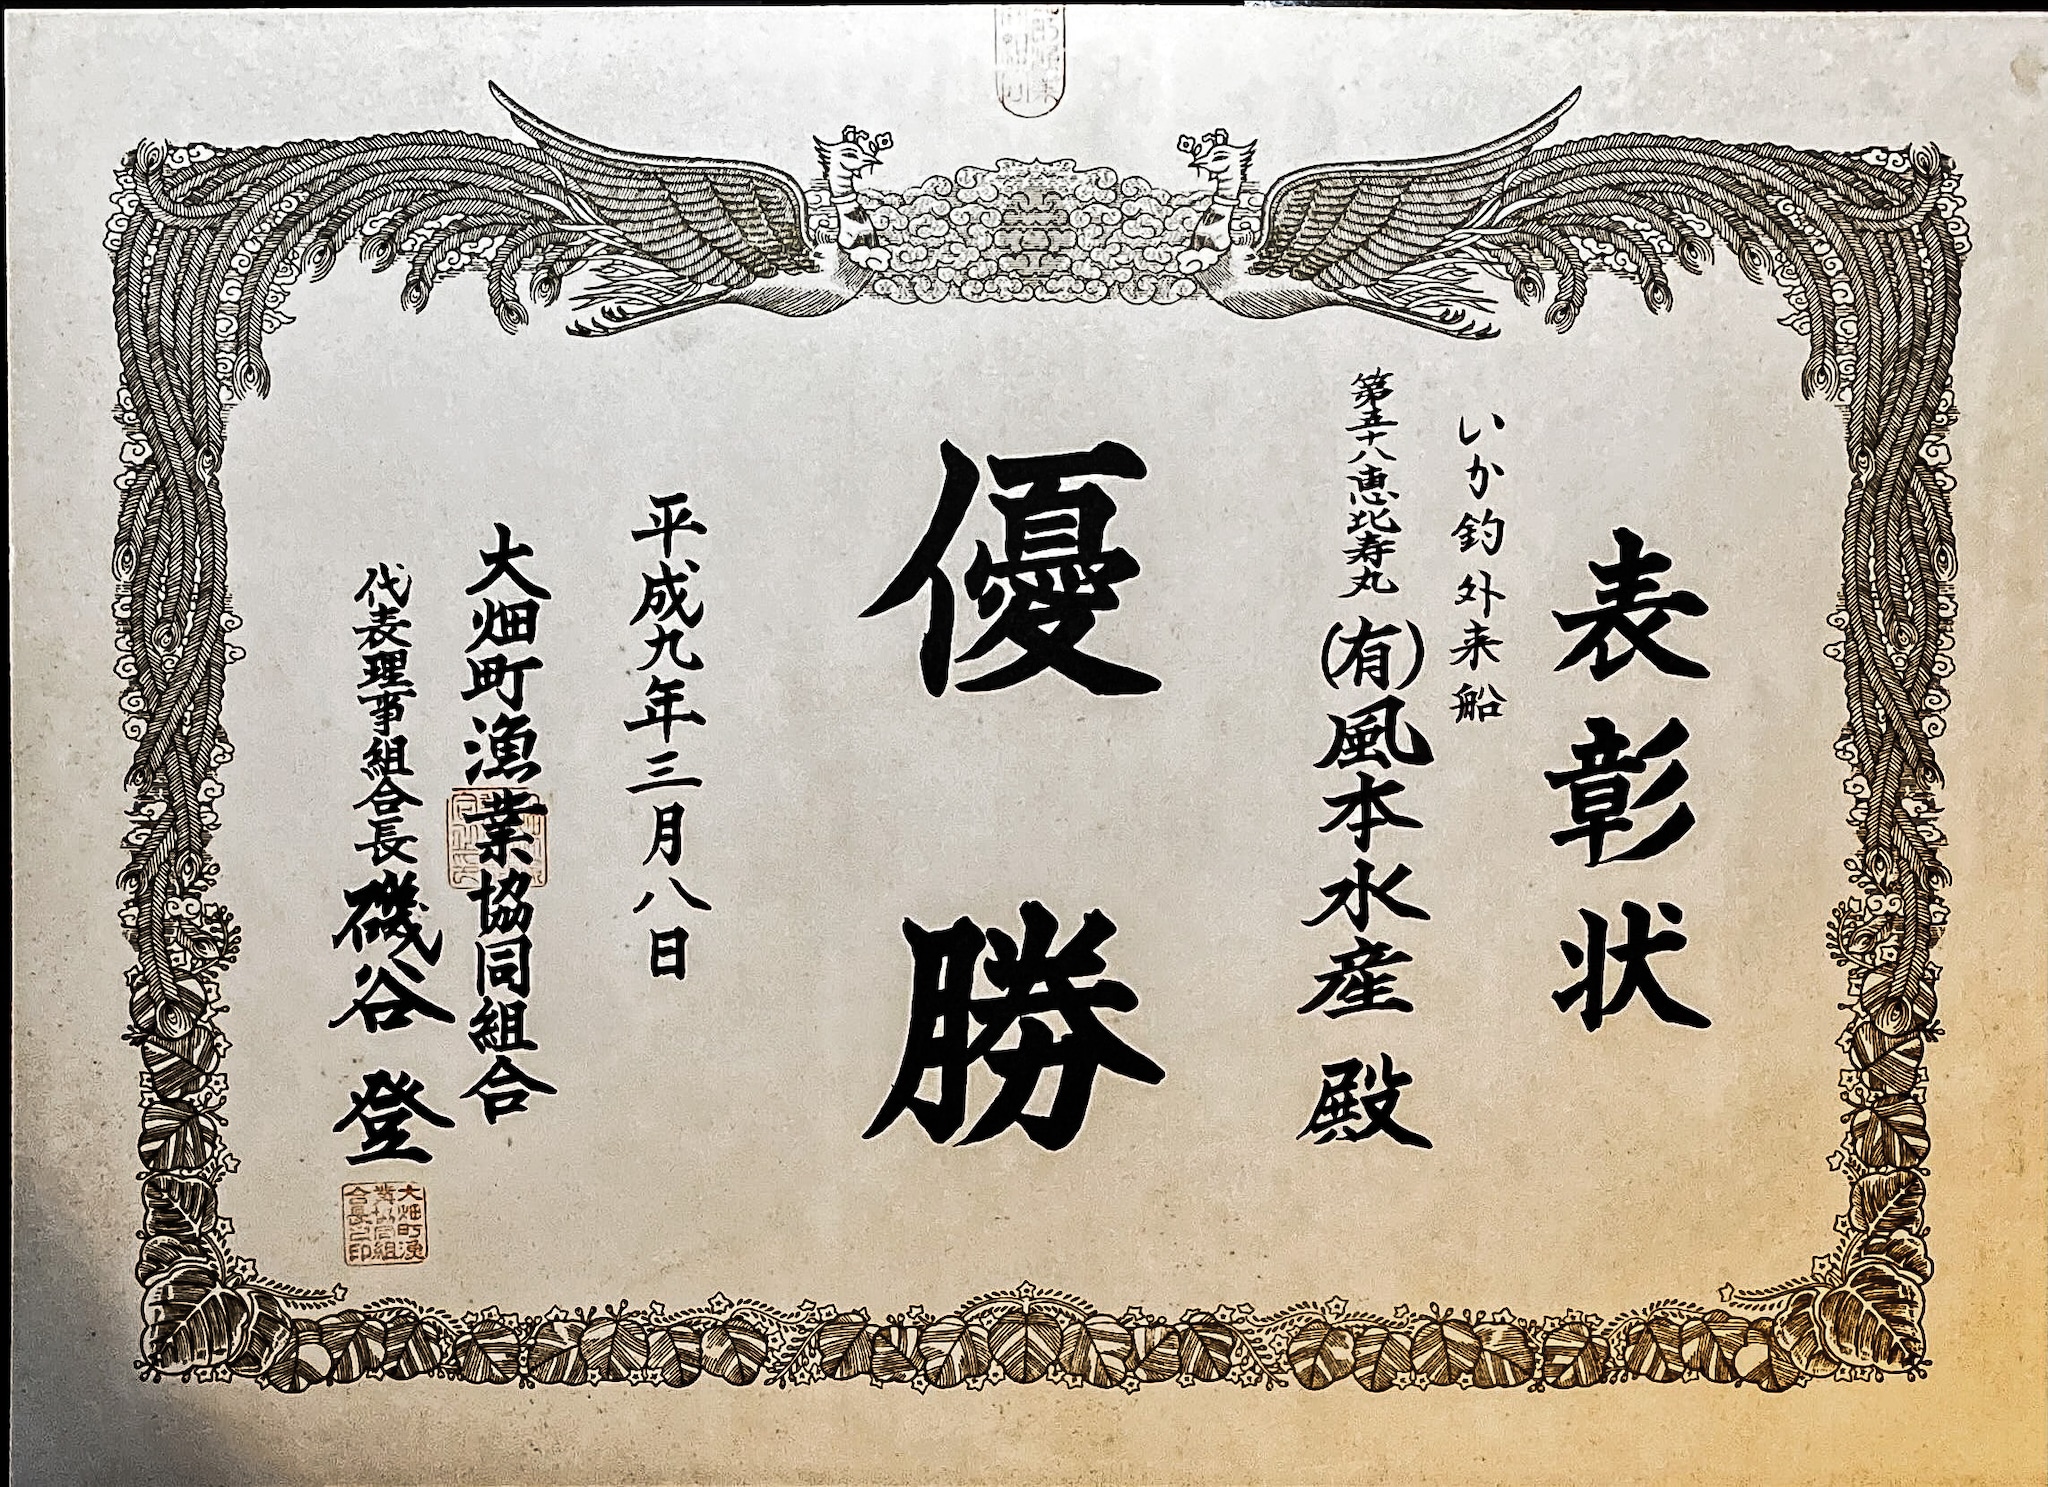 表彰状
いか釣外来船
第五十八恵比寿丸 (有)風本水産 殿
優勝
平成九年三月八日
大畑町漁業協同組合
代表理事組合長 磯谷 登
大畑町漁
業協同組
合長之印